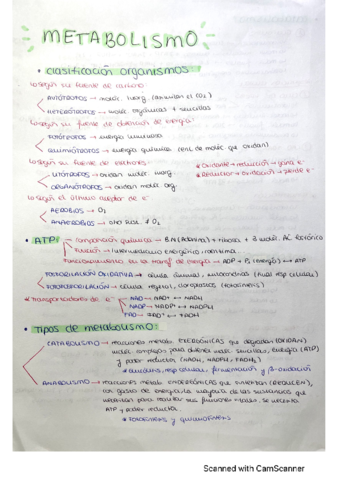 METABOLISMO
• clasificación organismos:
↳ según su fuente de carbono
AUTÓTROFOS → moléc. inorg. (asimilan el CO2)
HETERÓTROFOS → moléc. orgánicas + sencillas
↳ según su fuente de obtención de energía:
FOTÓTROFOS → energía luminosa
QUIMIÓTROFOS → energía química (en. de moléc que oxidan)
↳ según su fuente de electrones:
LITÓTROFOS → oxidan moléc. inorg.
ORGANÓTROFOS → oxidan moléc org.
* Oxidante → reducción → gana e-
* Reductor → oxidación → pierde e-
↳ según el último aceptor de e-
AEROBIOS → O2
ANAEROBIOS → otro dist. # O2
• ATP:
composición química → BA (Adenina) + ribosa + 3 moléc. AC. fosfórico
Función → intermediario energético
Funcionamiento en la transf de energía → ADP + Pi (energía) ↔ ATP
FOSFORILACIÓN OXIDATIVA → célula animal, mitocondrias (final resp celular)
FOTOFOSFORILACIÓN → célula vegetal, cloroplastos (fotosíntesis)
* Transportadores de e-
NAD → NAD+ ↔ NADH
NADP → NADP+ ↔ NADPH
FAD → FAD+ ↔ FADH
• Tipos de metabolismo:
CATABOLISMO → reacciones metab. EXERGÓNICAS que degradan (OXIDAN)
moléc complejas para obtener moléc. sencillas, energía (ATP)
y poder reductor (NADH, NADPH, FADH2)
* glucólisis, resp. celular, fermentación y β-oxidación
ANABOLISMO → reacciones metab. ENDERGÓNICAS que sintetizan (REDUCEN),
con gasto de energía, la mayoría de las sustancias que
necesitan para realizar sus funciones vitales. Se necesita
ATP y poder reductor
* FOTOSÍNTESIS y quimiosíntesis
Scanned with CamScanner